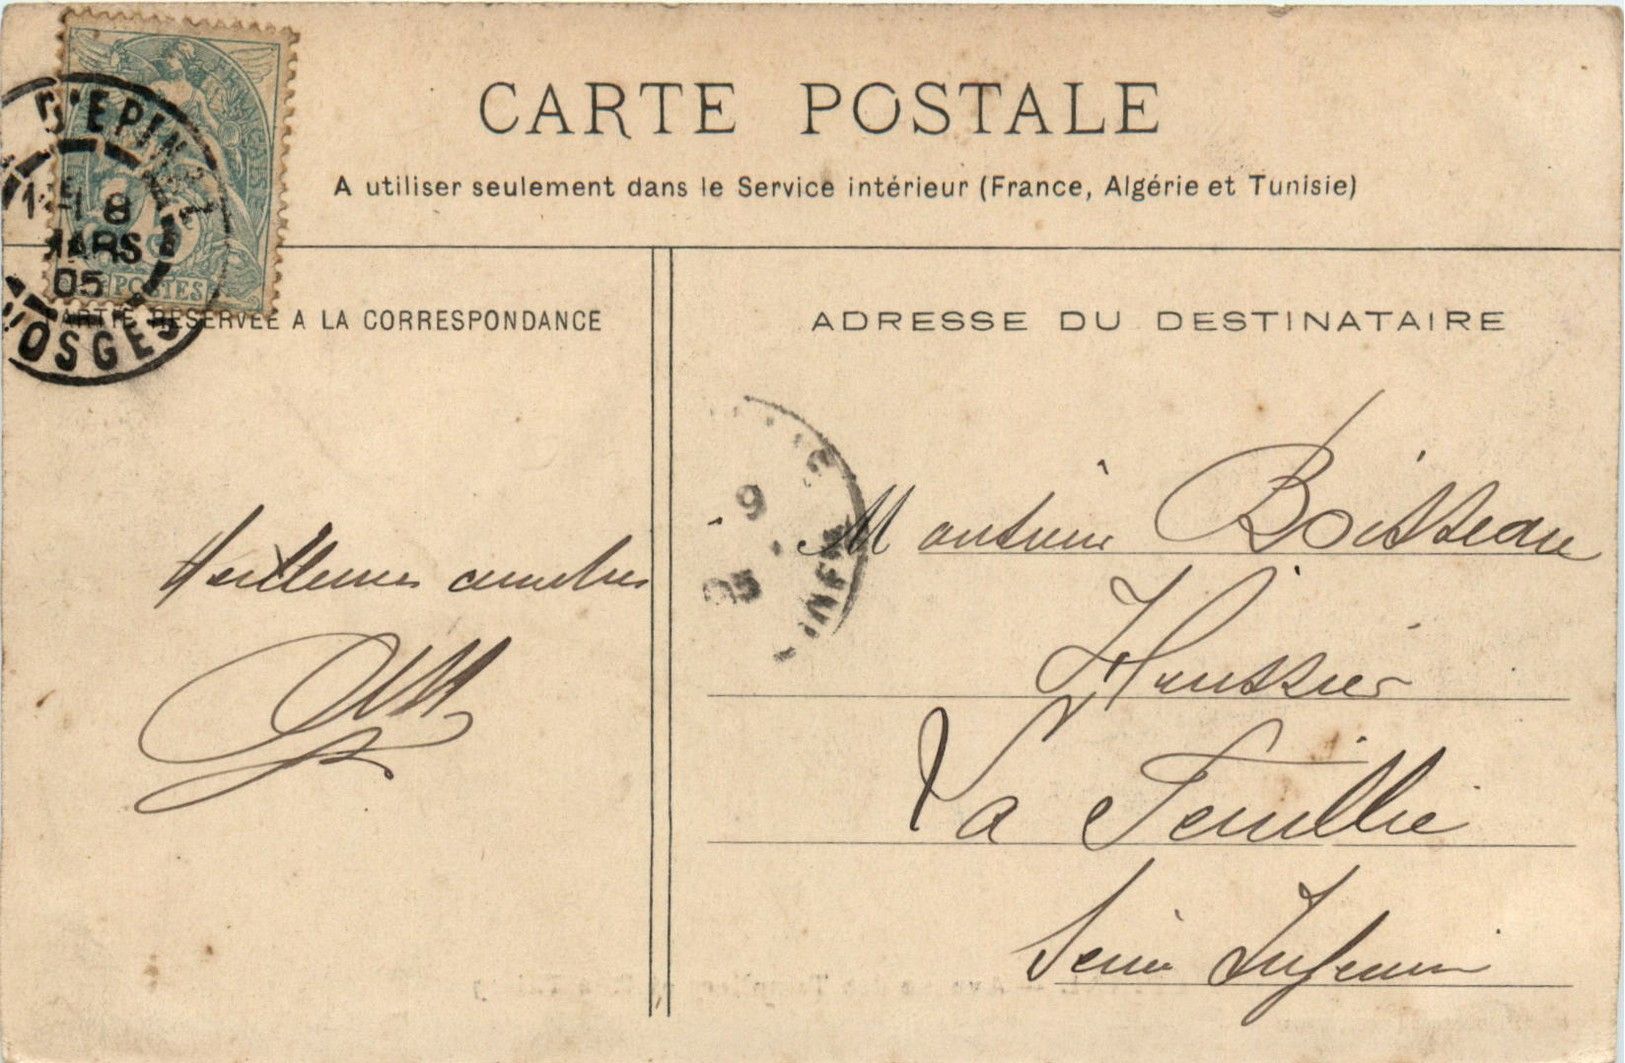 CARTE POSTALE
A utiliser seulement dans le Service intérieur (France, Algérie et Tunisie)
D'EPINAL
1RE 8
MARS
05
VOSGES
POSTES
PARTIE RÉSERVÉE A LA CORRESPONDANCE
ADRESSE DU DESTINATAIRE
9
05
INFRE
Monsieur Boisseau
Huissier
La Feuillie
Seine Inferieure
Meilleures amitiés